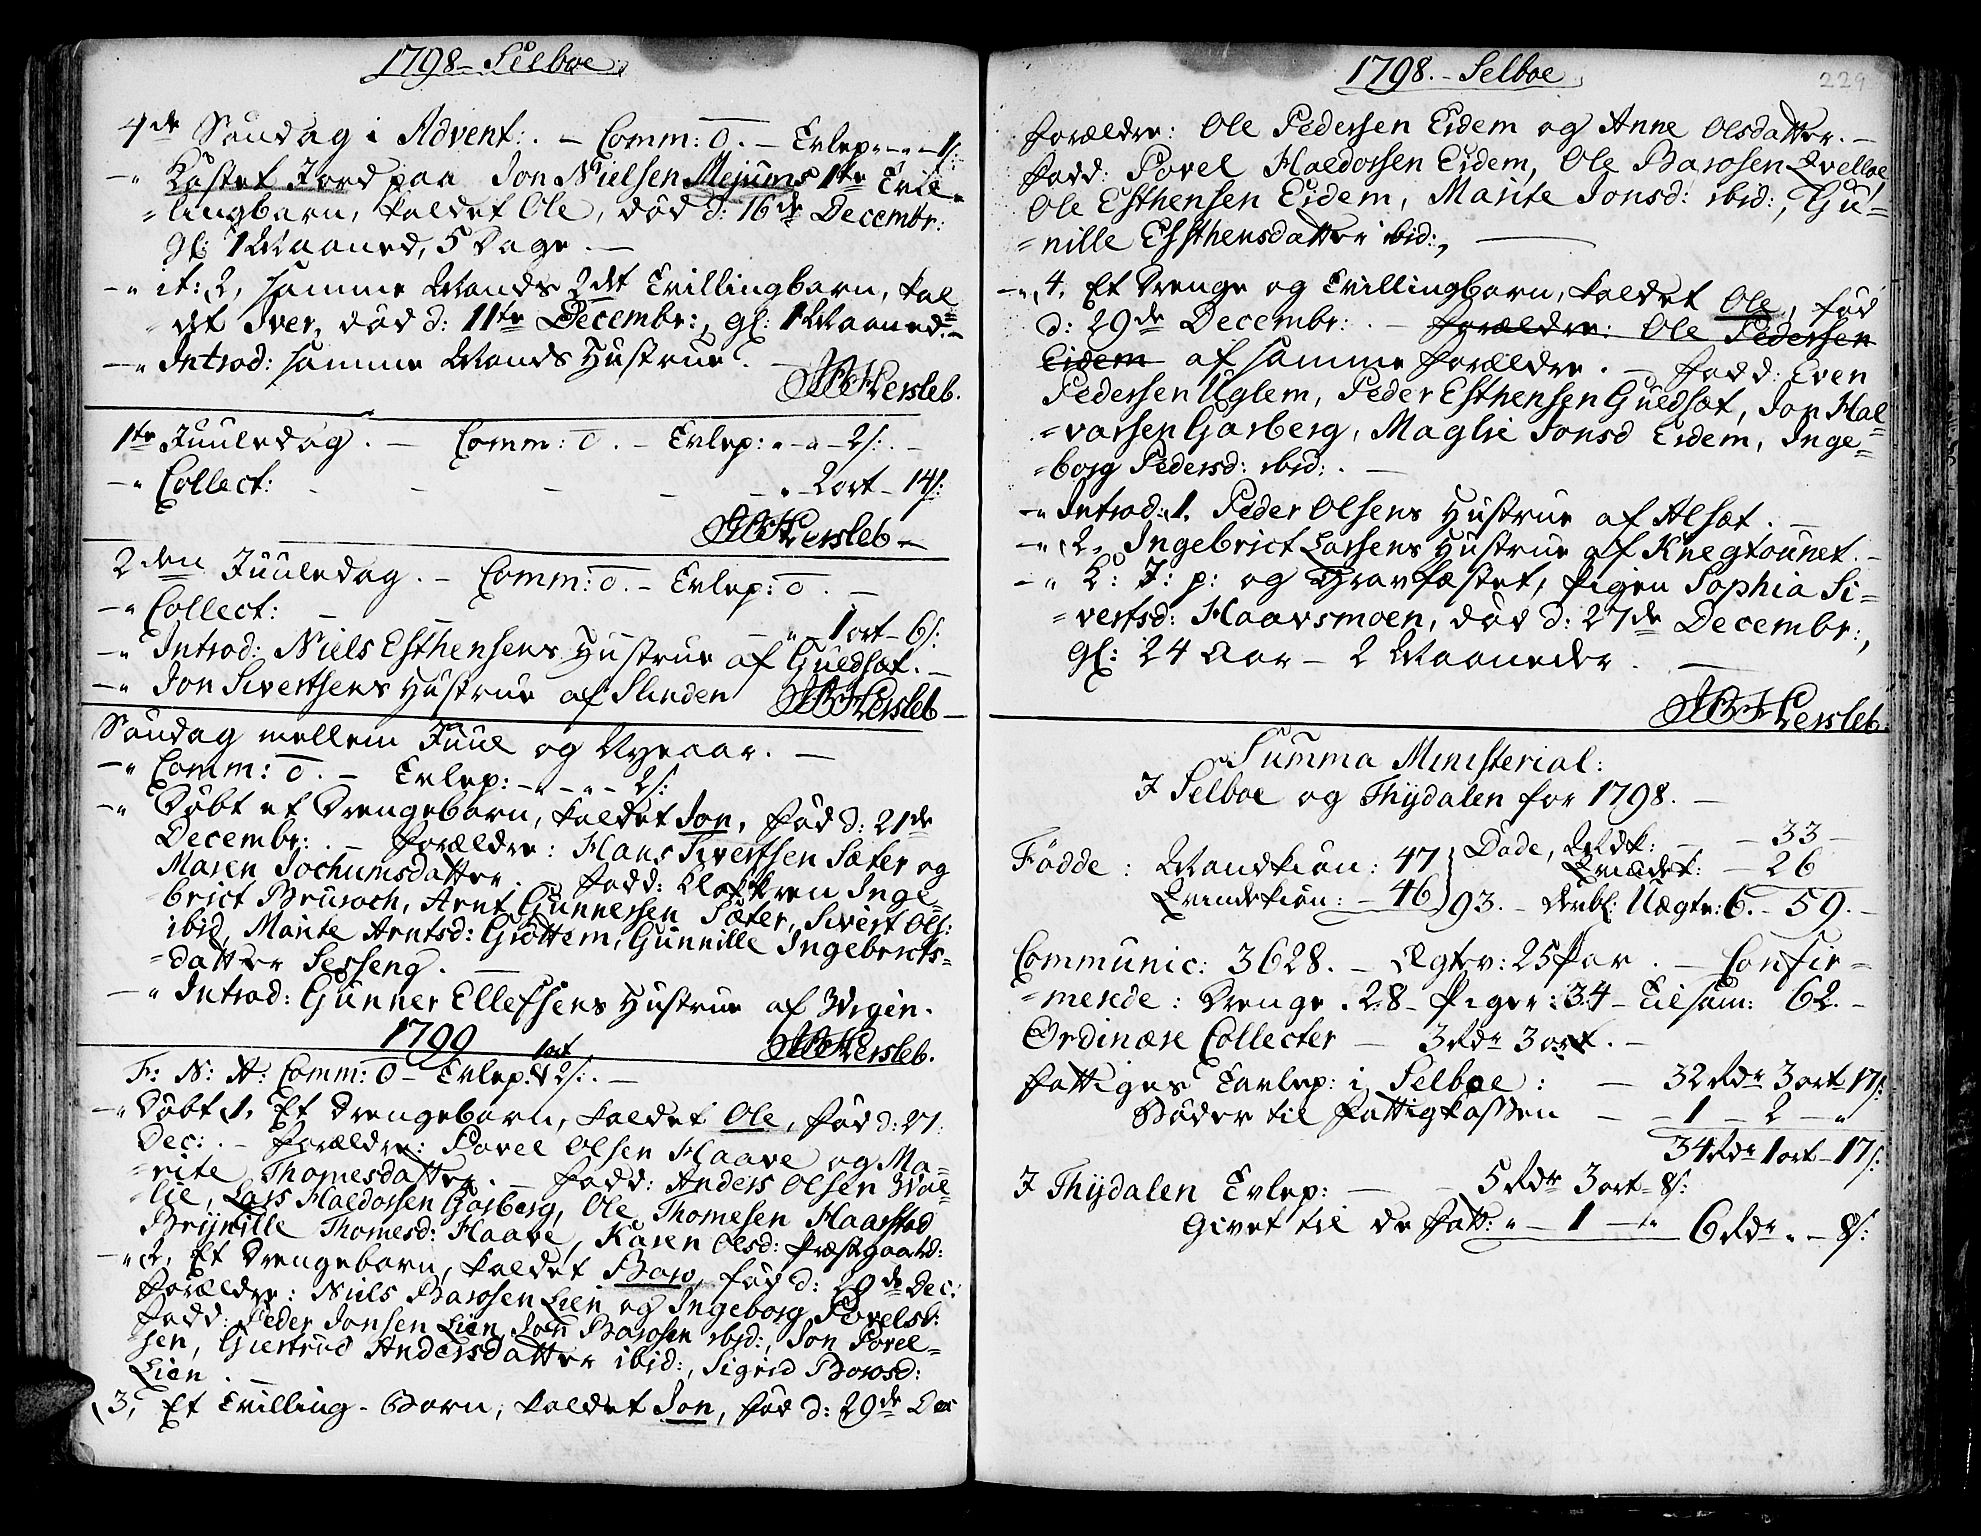 1798 - Selboe
4de Søndag i Advent: . - Comm: o. - Tvlep - " - 1/:
- " Kastet Jord paa Jon Nielsen Mejums 1te Tvil
= lingbarn, kaldet Ole, død d: 16de Decembr:
gl: 1 Maaned, 5 Dage. -
- " it: 2, samme Mands 2det Tvillingbarn, kal
det Iver, død d: 11te Decembr:, gl: 1 Maaned. -
- " Introd: samme Mands Hustrue. -
Hersleb.
1te Juuledag. - Comm: o. - Tvlep: " - " - 2/: . -
- " Collect: - - - - - " - 2 ort - 14/:
Hersleb -
2den Juuledag. - Comm: o. - Tvlep: o. -
- " Collect: - - " - 1 ort - 6/:
- " Introd: Niels Esthensens Hustrue af Guldsæt. -
- " Jon Sivertsens Hustrue af Slinden
Hersleb -
Søndag mellem Juul og Nyeaar. -
- " Comm: o. - Tvlep: - " - " - 2/:
- " Døbt et Drengebarn, kaldet Jon, fød d: 21de
Decembr: . - Forældre: Hans Sivertsen Sæter og
Maren Jochumsdatter. - Fadd: Klokkeren Inge=
brict Brusoch, Arnt Gunnersen Sæter, Sivert Ols:
ibid, Marite Arntsd: Grøttem, Gunnille Ingebricts=
= datter Sesseng. -
- " Introd: Gunner Ellefsens Hustrue af Wigen.
1799
Hersleb.
F: N: A: Comm: o - Tvlep: 1 ort 2/: . -
- " Døbt 1, Et Drengebarn, kaldet Ole, fød d: 27
Dec: . - Forældre: Povel Olsen Haave og Ma=
= rite Thomesdatter. - Fadd: Anders Olsen Wal=
lie, Lars Haldorsen Garberg, Ole Thomesen Haarstad
Brynille Thomesd: Haave, Karen Olsd: Præstgaard:
- " 2, Et Drengebarn, kaldet Baro, fød d: 29de Dec:
Forældre: Niels Barosen Lien og Ingeborg Povelsd:
Fadd: Peder Jonsen Lien, Jon Barosen ibid:, Jon Povel=
sen, Giertrud Andersdatter ibid:, Sigrid Barosd:
Lien.
3, Et Tvilling-Barn, kaldet Jon, fød d: 29de Dec
1798. - Selboe
229
Forældre: Ole Pedersen Eidem og Anne Olsdatter. -
Fadd: Povel Haldorsen Eidem, Ole Barosen Qvelloe
Ole Esthensen Eidem, Marite Jonsd: ibid:, Gu=
= nille Essthensdatter ibid:,
- " 4, Et Drenge og Tvillingbarn, kaldet Ole, fød
d: 29de Decembr: . - Forældre: Ole Pedersen
Eidem af samme Forældre. - Fadd: Even
Pedersen Uglem, Peder Esthensen Guldsæt, Jon Hal=
= varsen Garberg, Maglie Jonsd Eidem, Inge=
= borg Pedersd: ibid: . -
- " Introd: 1, Peder Olsens Hustrue af Alsæt. -
- " 2, Ingebrict Larsens Hustrue af Knegtounet. -
- " K: J: p: og Gravfæstet, Pigen Sophia Si=
= vertsd: Haavsmoen, død d: 27de Decembr:,
gl: 24 Aar - 2 Maaneder. -
Hersleb.
Summa Ministerial:
I Selboe og Thydalen for 1798. -
Fødde: Mandkiøn: 47 Døde, Mdk: - - 33 -
Qvindekiøn: - 46 93. - Qvindek: - 26
derbl: Uægte: 6. - 59. -
Communic: 3628. - Ægtev: 25 Par. - Confir=
= merede: Drenge. 28 - Piger: 34 - Tilsam: 62. -
Ordinære Collecter - 3 Rdr 3 ort. -
Fattiges Tavlep: i Selboe: - 32 Rdr 3 ort 17/:
Bøder til Fattigkassen - - 1 - 2 - "
34 Rdr 1 ort - 17/:
I Thydalen Tvlep: - - 5 Rdr 3 ort - 8/:
Givet til de Fatt: " - 1 - " 6 Rdr " - 8/: